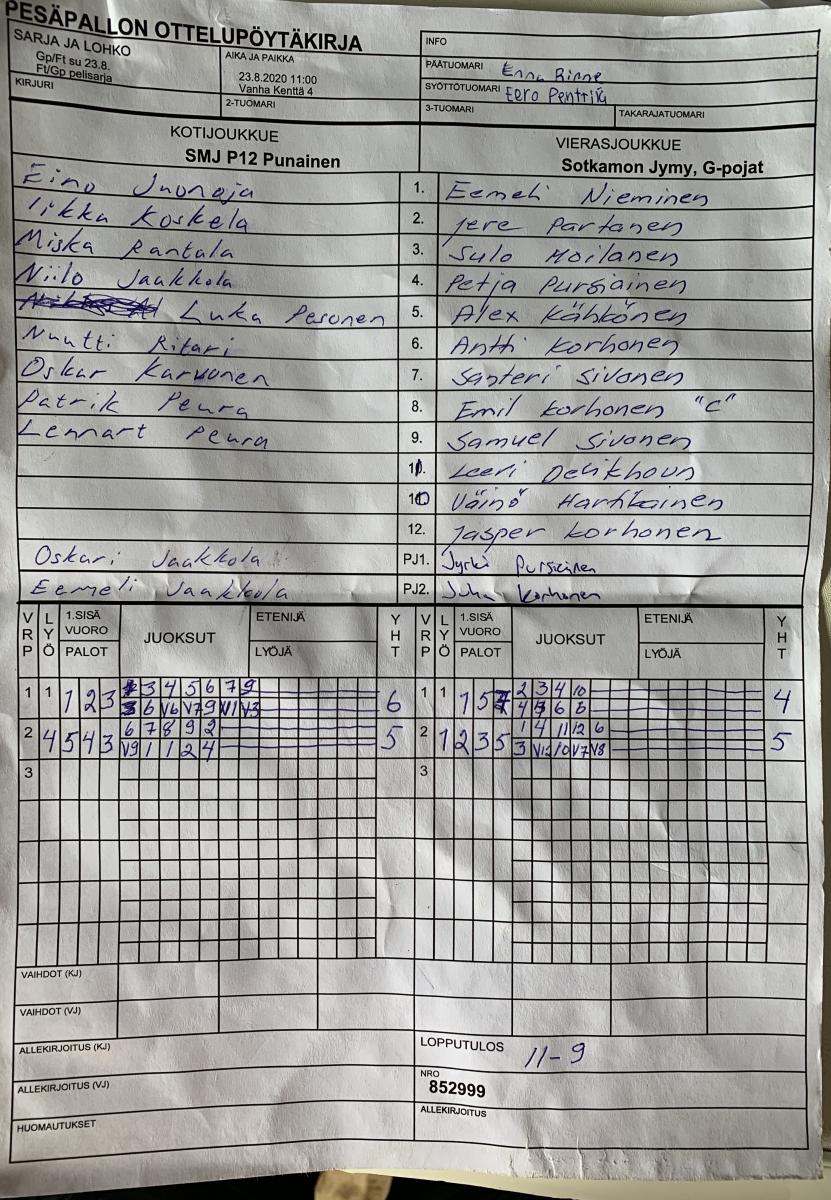 PESÄPALLON OTTELUPÖYTÄKIRJA
SARJA JA LOHKO
Gp/Ft su 23.8.
Ft/Gp pelisarja
AIKA JA PAIKKA
23.8.2020 11:00
Vanha Kenttä 4
KIRJURI
2-TUOMARI
INFO
PÄÄTUOMARI Enna Rinne
SYÖTTÖTUOMARI Eero Penttilä
3-TUOMARI TAKARAJATUOMARI
KOTIJOUKKUE VIERASJOUKKUE
SMJ P12 Punainen Sotkamon Jymy, G-pojat
Eino Juonoja 1. Eemeli Nieminen
Iikka Koskela 2. Jere Partanen
Miska Rantala 3. Sulo Moilanen
Niilo Jaakkola 4. Petja Pursiainen
Luka Pesonen 5. Alex Kähkönen
Nuutti Ritari 6. Antti Korhonen
Oskar Karvonen 7. Santeri Sivonen
Patrik Peura 8. Emil Korhonen "C"
Lennart Peura 9. Samuel Sivonen
Leeri
Väinö Hartikainen
12. Jasper Korhonen
Oskari Jaakkola PJ1. Jyrki Pursiainen
Eemeli Jaakkola PJ2. Juha Korhonen
VRP LYÖ 1.SISÄ VUORO PALOT JUOKSUT ETENIJÄ LYÖJÄ YHT VRP LYÖ 1.SISÄ VUORO PALOT JUOKSUT ETENIJÄ LYÖJÄ YHT
1 1 1 2 3 3 4 5 6 7 9 6 1 1 1 5 7 2 3 4 10 4
6 V6 V7 9 V1 V3 4 6 8
2 4 5 4 3 6 7 8 9 2 5 2 1 2 3 5 1 4 11 12 6 5
V9 1 1 2 4 3 V12 10 V7 V8
3 3
VAIHDOT (KJ)
VAIHDOT (VJ)
ALLEKIRJOITUS (KJ) LOPPUTULOS 11-9
ALLEKIRJOITUS (VJ) NRO
852999
HUOMAUTUKSET ALLEKIRJOITUS